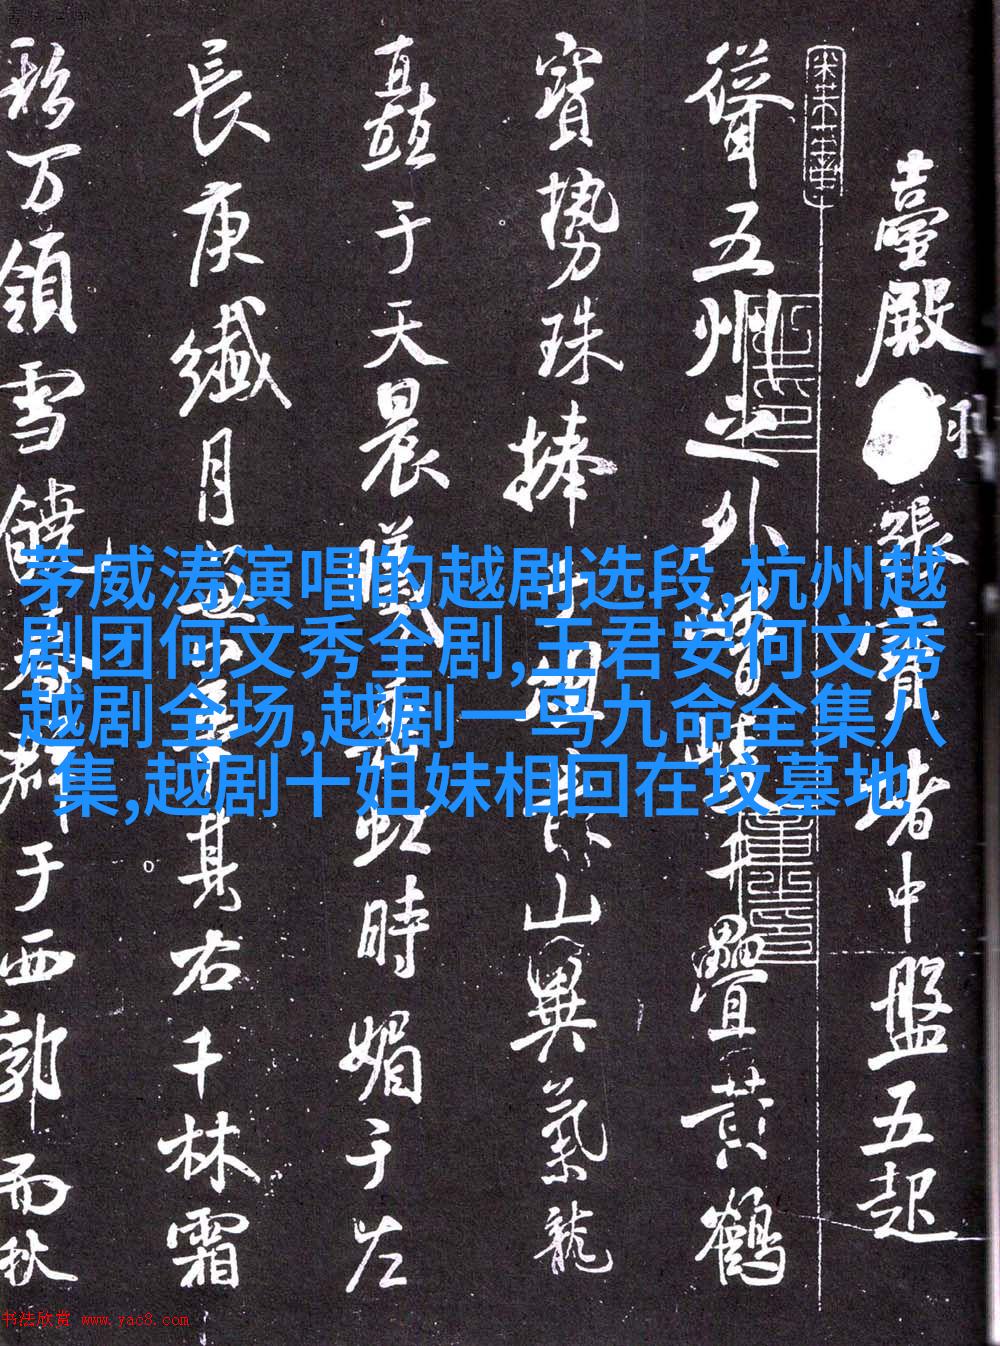 茅威涛演唱的越剧选段,杭州越
剧团何文秀全剧,王君安何文秀
越剧全场,越剧一鸟九命全集八
集,越剧十姐妹相回在坟墓地
臺殿 張 堵中盤五起
聳五州之外 疊黃鶴
寶勢珠捧 山異氣龍
矗于天晨曦 虹時媚于左
長庚纖月 其右千林霜
万領雪饒 群于西郭而秋
书法欣赏 www.yac8.com